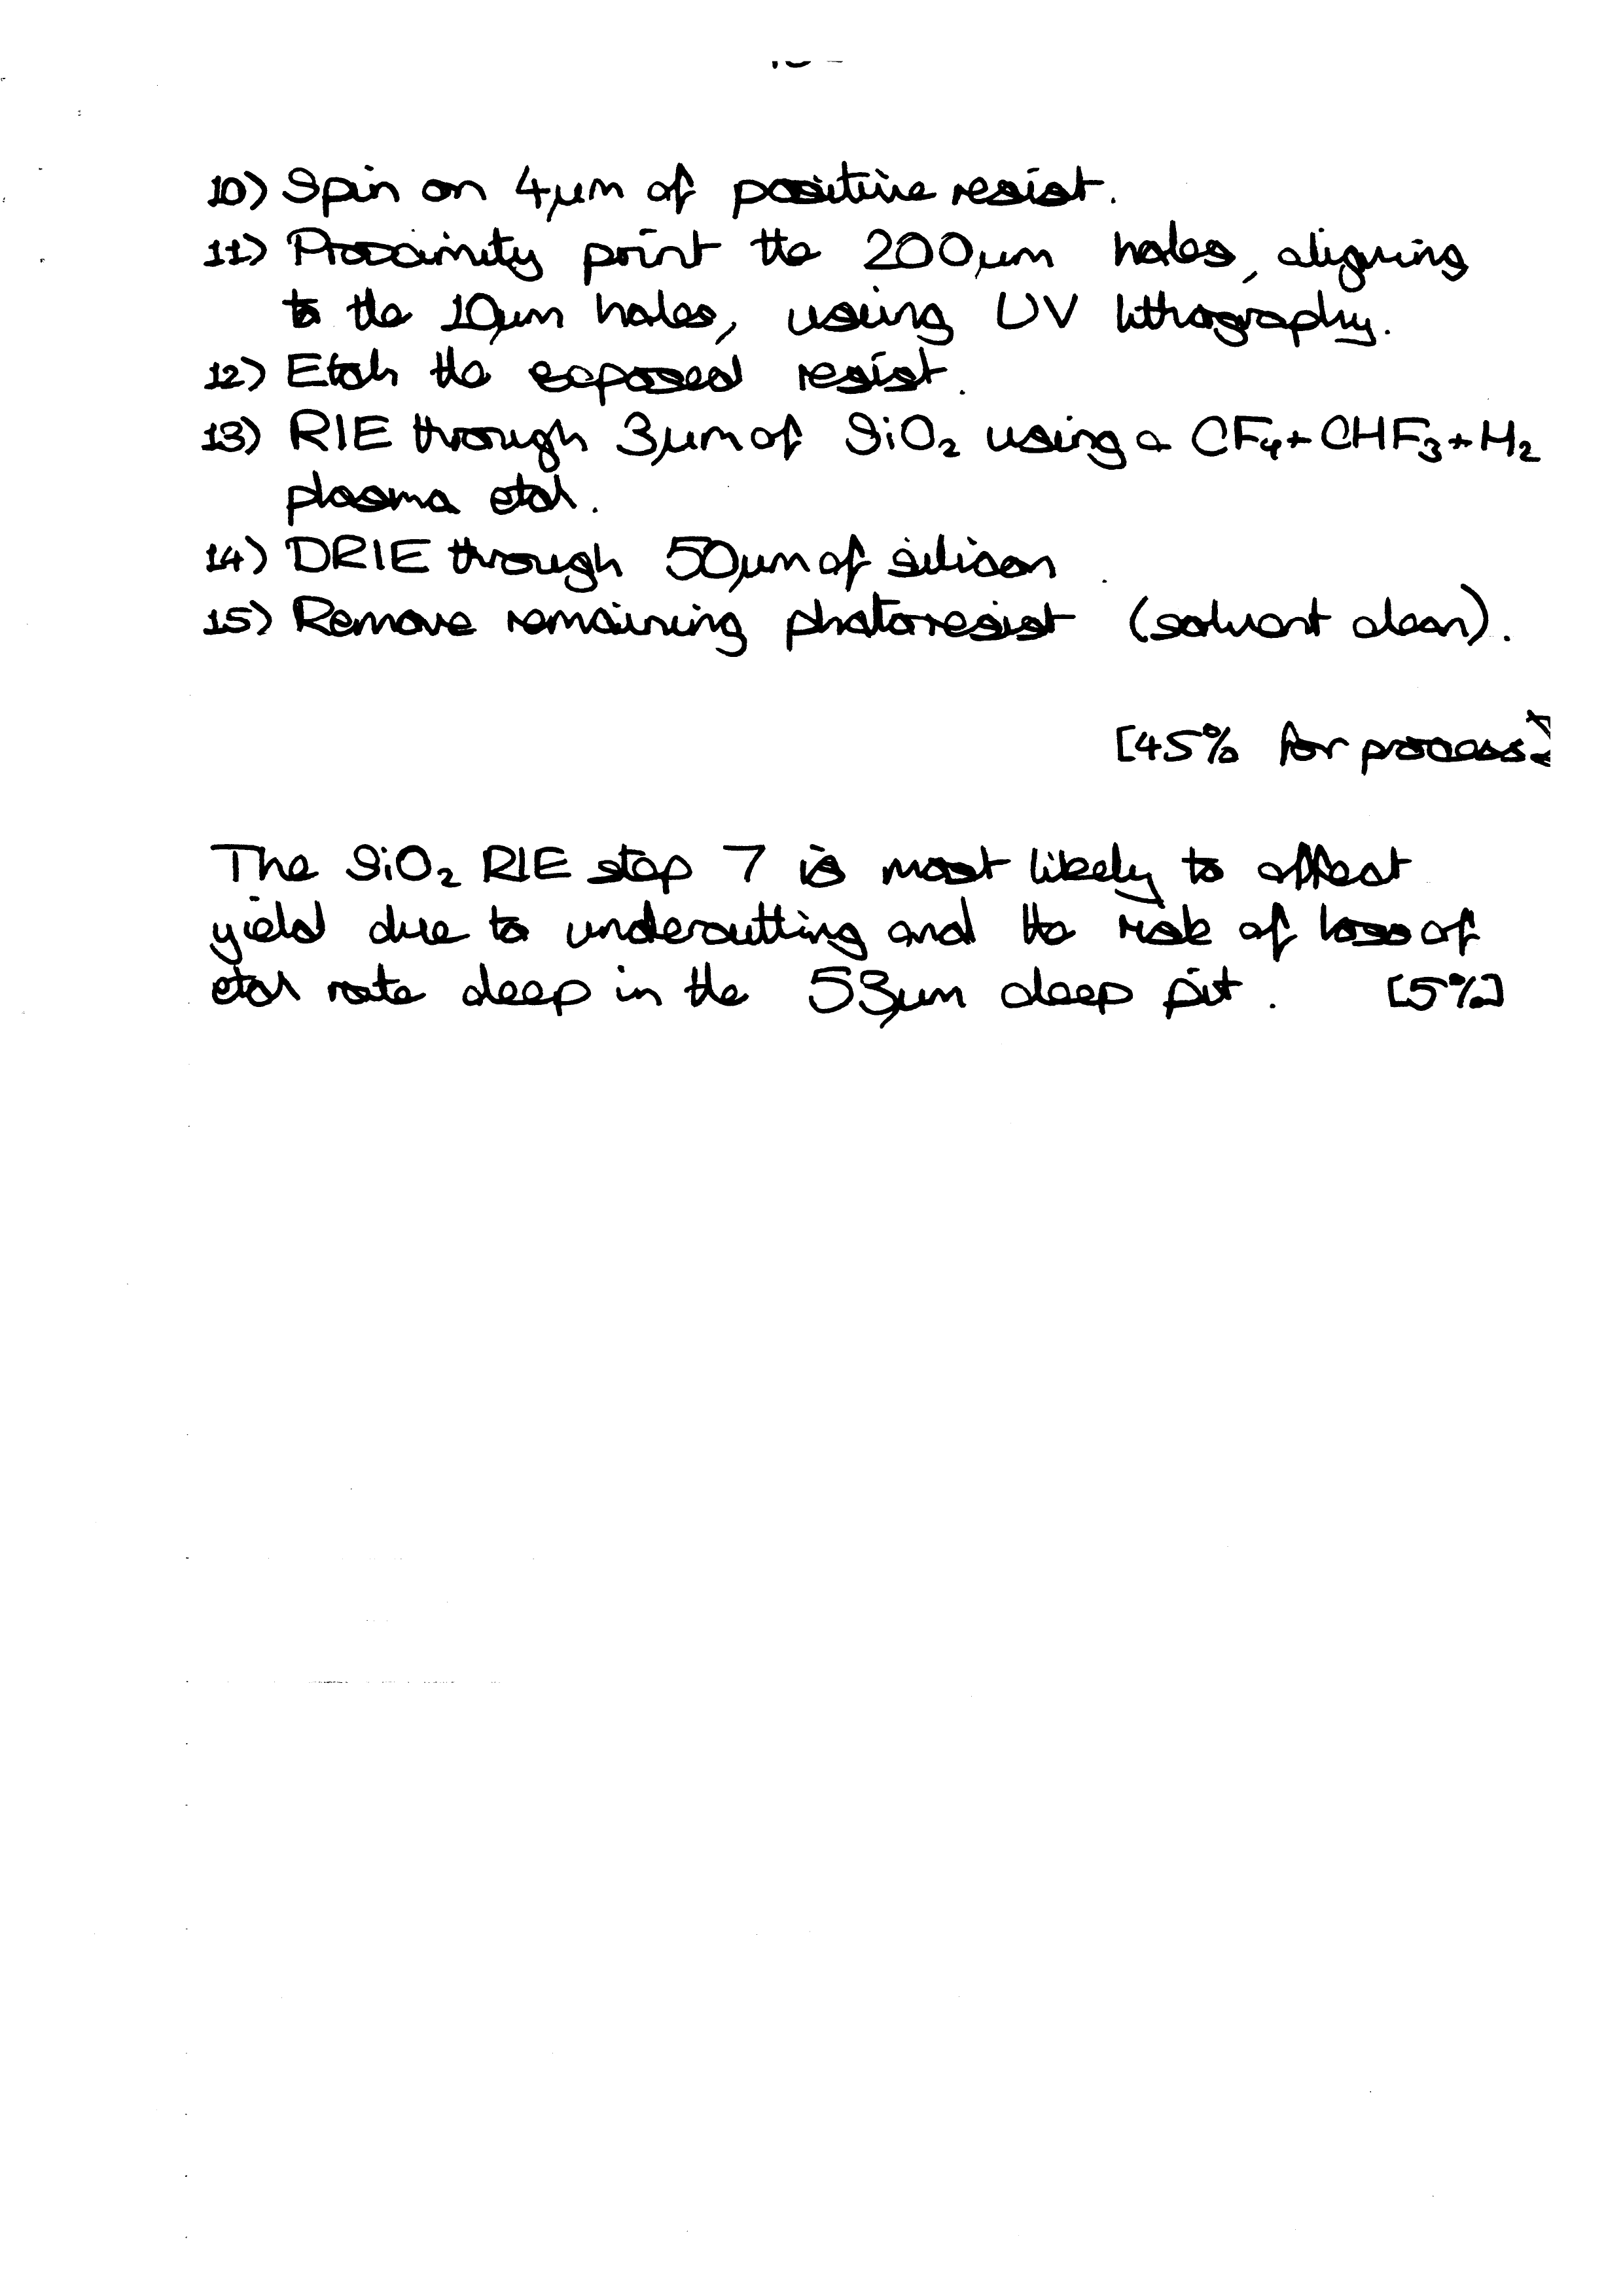 10) Spin on 4μm of positive resist.
11) Proximity print the 200μm holes, aligning
to the 10μm holes, using UV lithography.
12) Etch the exposed resist.
13) RIE through 3μm of SiO₂ using a CF₄ + CHF₃ + H₂
plasma etch.
14) DRIE through 50μm of silicon.
15) Remove remaining photoresist (solvent clean).
[45% for process]
The SiO₂ RIE step 7 is most likely to affect
yield due to undercutting and the risk of loss of
etch rate deep in the 53μm deep pit. [5%]